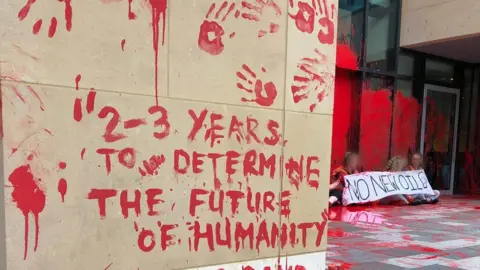 2-3
2-3 YEARS
TO DETERMINE
THE FUTURE
OF HUMANITY
NO NEW OIL